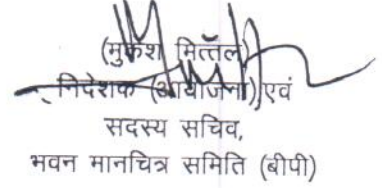 (मुकेश मित्तल)
निदेशक (आयोजना) एवं
सदस्य सचिव,
भवन मानचित्र समिति (बीपी)